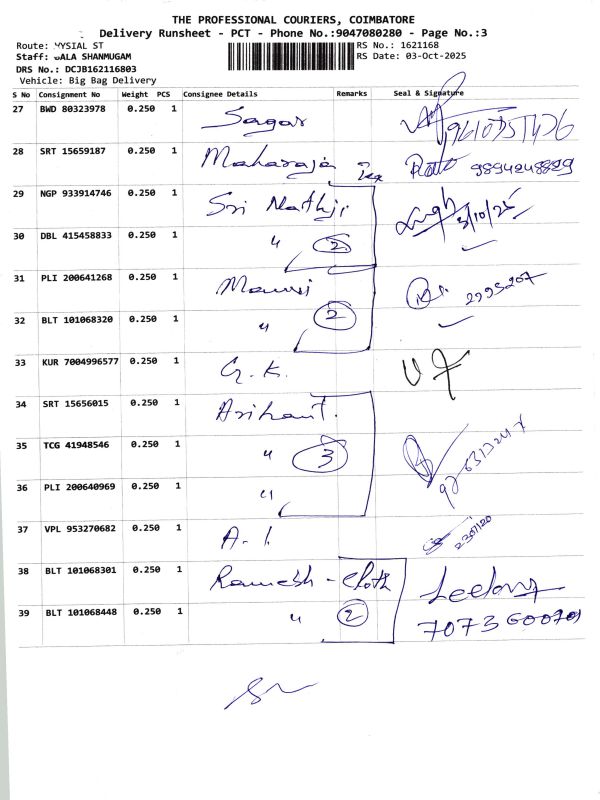 THE PROFESSIONAL COURIERS, COIMBATORE
Delivery Runsheet - PCT - Phone No.:9047080280 - Page No.:3
Route: MYSIAL ST RS No.: 1621168
Staff: BALA SHANMUGAM RS Date: 03-Oct-2025
DRS No.: DCJB162116803
Vehicle: Big Bag Delivery
S No Consignment No Weight PCS Consignee Details Remarks Seal & Signature
27 BWD 80323978 0.250 1 Sagar
28 SRT 15659187 0.250 1 Maharaja 9894248829
29 NGP 933914746 0.250 1 Sri Nathji 3/10/25
30 DBL 415458833 0.250 1 " 2
31 PLI 200641268 0.250 1 2995207
32 BLT 101068320 0.250 1 " 2
33 KUR 7004996577 0.250 1 G. K.
34 SRT 15656015 0.250 1 Arihant.
35 TCG 41948546 0.250 1 " 3
36 PLI 200640969 0.250 1 "
37 VPL 953270682 0.250 1 A. I.
38 BLT 101068301 0.250 1 Ramesh - cloth
39 BLT 101068448 0.250 1 " 2